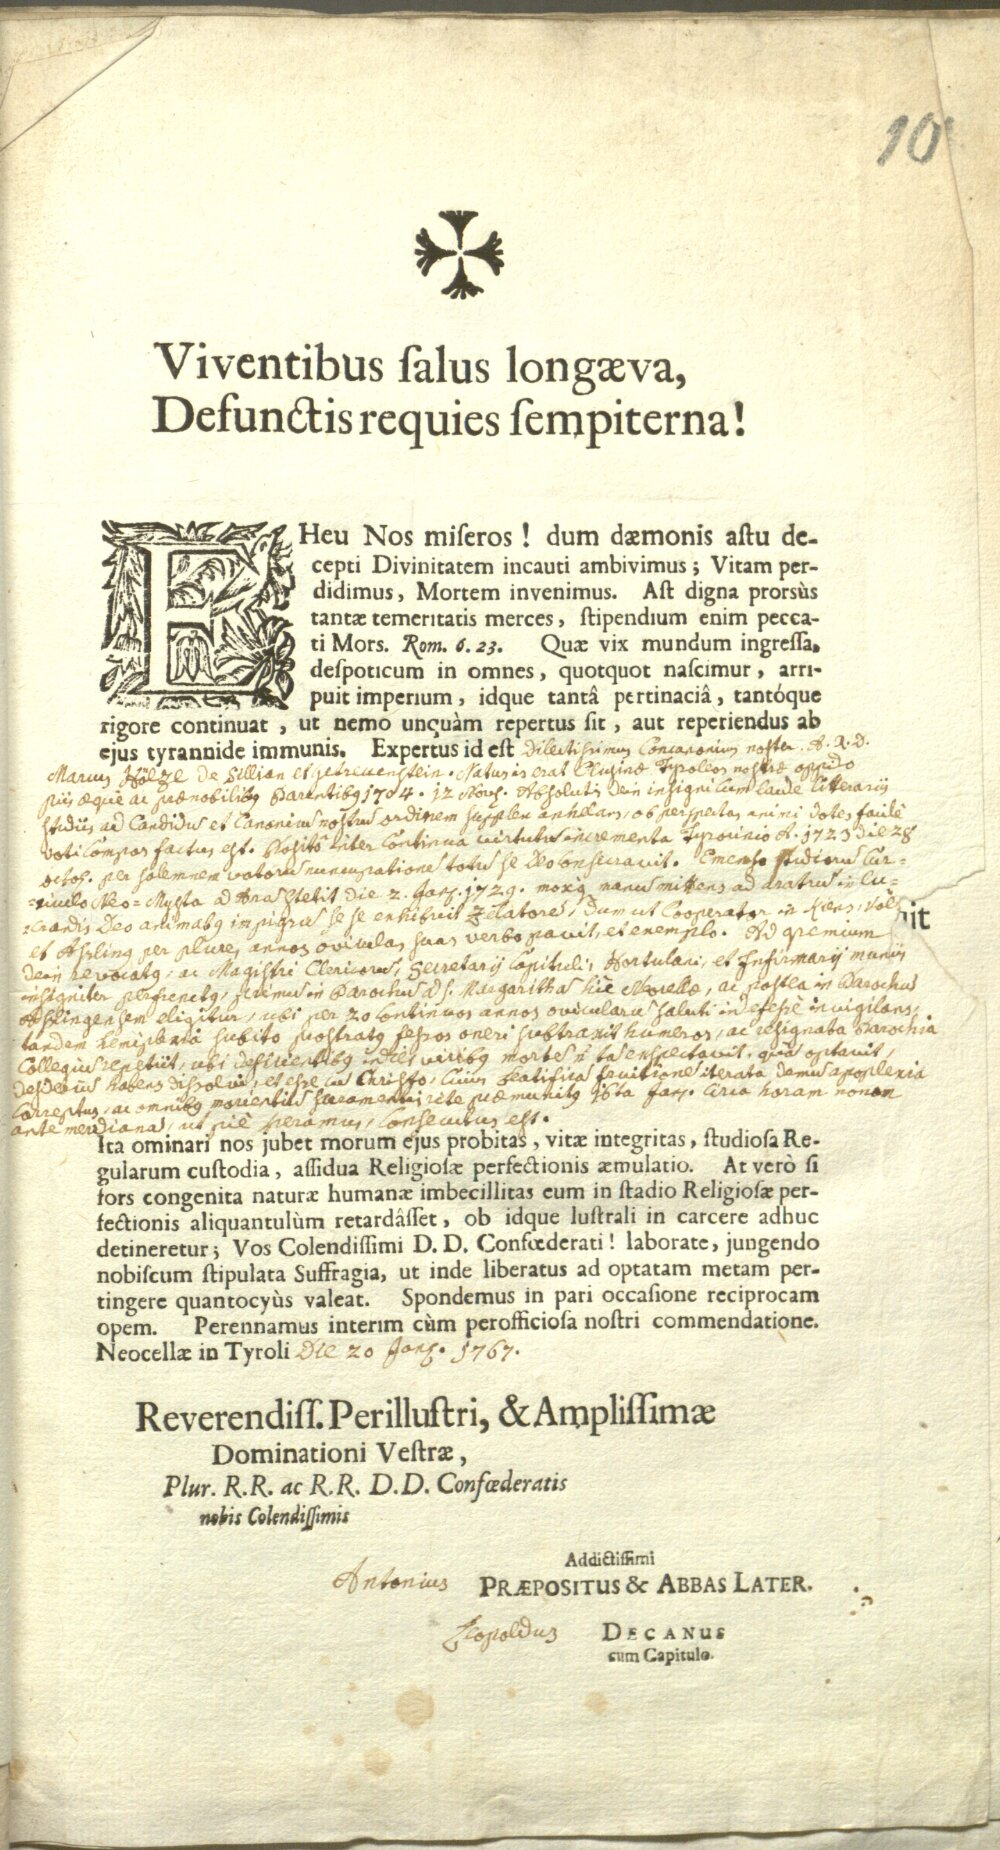 10
Viventibus ſalus longæva,
Defunctis requies ſempiterna!
EHeu Nos miſeros! dum dæmonis aſtu de-
cepti Divinitatem incauti ambivimus; Vitam per-
didimus, Mortem invenimus. Aſt digna prorsùs
tantæ temeritatis merces, ſtipendium enim pecca-
ti Mors. Rom. 6. 23. Quæ vix mundum ingreſſa,
deſpoticum in omnes, quotquot naſcimur, arri-
puit imperium, idque tantâ pertinaciâ, tantóque
rigore continuat, ut nemo unquàm repertus ſit, aut reperiendus ab
ejus tyrannide immunis. Expertus id eſt Dilectissimus Concanonicus noster A. R. D.
Marcus Hölzl de Sillian et Natus is erat Clusinæ Tyroleos nostræ oppido
piis æque ac prænobilibq Parentibq 1704. 12 Absolutis dein insigni cum laude litterarii
studiis ad Candidum et Canonicum nostrum ordinem supplex anhelans, ob perspectas animi dotes facile
voti compos factus est. Posito inter continua virtutis incrementa Tyrocinio A. 1723 die 28
octob. per solemnem votorum nuncupationem totum se Deo consecravit. Emenso studiorum Cur-
-riculo Neo-Mysta ad Aras stetit die 2. 1729. moxq manus mittens ad aratrum in lu-
-crandis Deo animabq impigrum se se exhibuit Zelatorem, dum ut Cooperator in Kiens, Völs
hit
et Assling per plures annos oviculas suas verbo pavit, et exemplo. Ad gremium
dein revocatq, ac Magistri Clericorum, Secretarii Capituli, Hortulani, et Infirmarii muniis
insigniter perfunctq, primus in Parochum ad S. Margaritham hic Novellæ, ac postea in Parochum
Asslingensem eligitur, ubi per 20 continuos annos ovicularum saluti indefesse invigilans,
tandem hemiplexia subito prostratq fessos oneri subtraxit humeros, ac resignata Parochia
Collegium repetiit, ubi deficientibq indies viribq mortem expectavit, quam optavit,
desiderium habens dissolvi, et esse cum Christo, cuius beatifica fruitione iterata demum apoplexia
correptus, ac omnibq morientium Sacramentis rite præmunitq 16ta circa horam nonam
antemeridianam, ut pie speramus, consecutus est.
Ita ominari nos jubet morum ejus probitas, vitæ integritas, ſtudioſa Re-
gularum cuſtodia, aſſidua Religioſæ perfectionis æmulatio. At verò ſi
fors congenita naturæ humanæ imbecillitas eum in ſtadio Religioſæ per-
fectionis aliquantulùm retardâſſet, ob idque luſtrali in carcere adhuc
detineretur; Vos Colendiſſimi D. D. Confœderati! laborate, jungendo
nobiſcum ſtipulata Suffragia, ut inde liberatus ad optatam metam per-
tingere quantocyùs valeat. Spondemus in pari occaſione reciprocam
opem. Perennamus interim cùm perofficioſa noſtri commendatione.
Neocellæ in Tyroli Die 20 1767.
Reverendiſſ. Perilluſtri, & Ampliſſimæ
Dominationi Veſtræ,
Plur. R.R. ac R.R. D.D. Confœderatis
nobis Colendiſſimis
Addictiſſimi
Antonius PRÆPOSITUS & ABBAS LATER.
Leopoldus DECANUS
cum Capitulo.